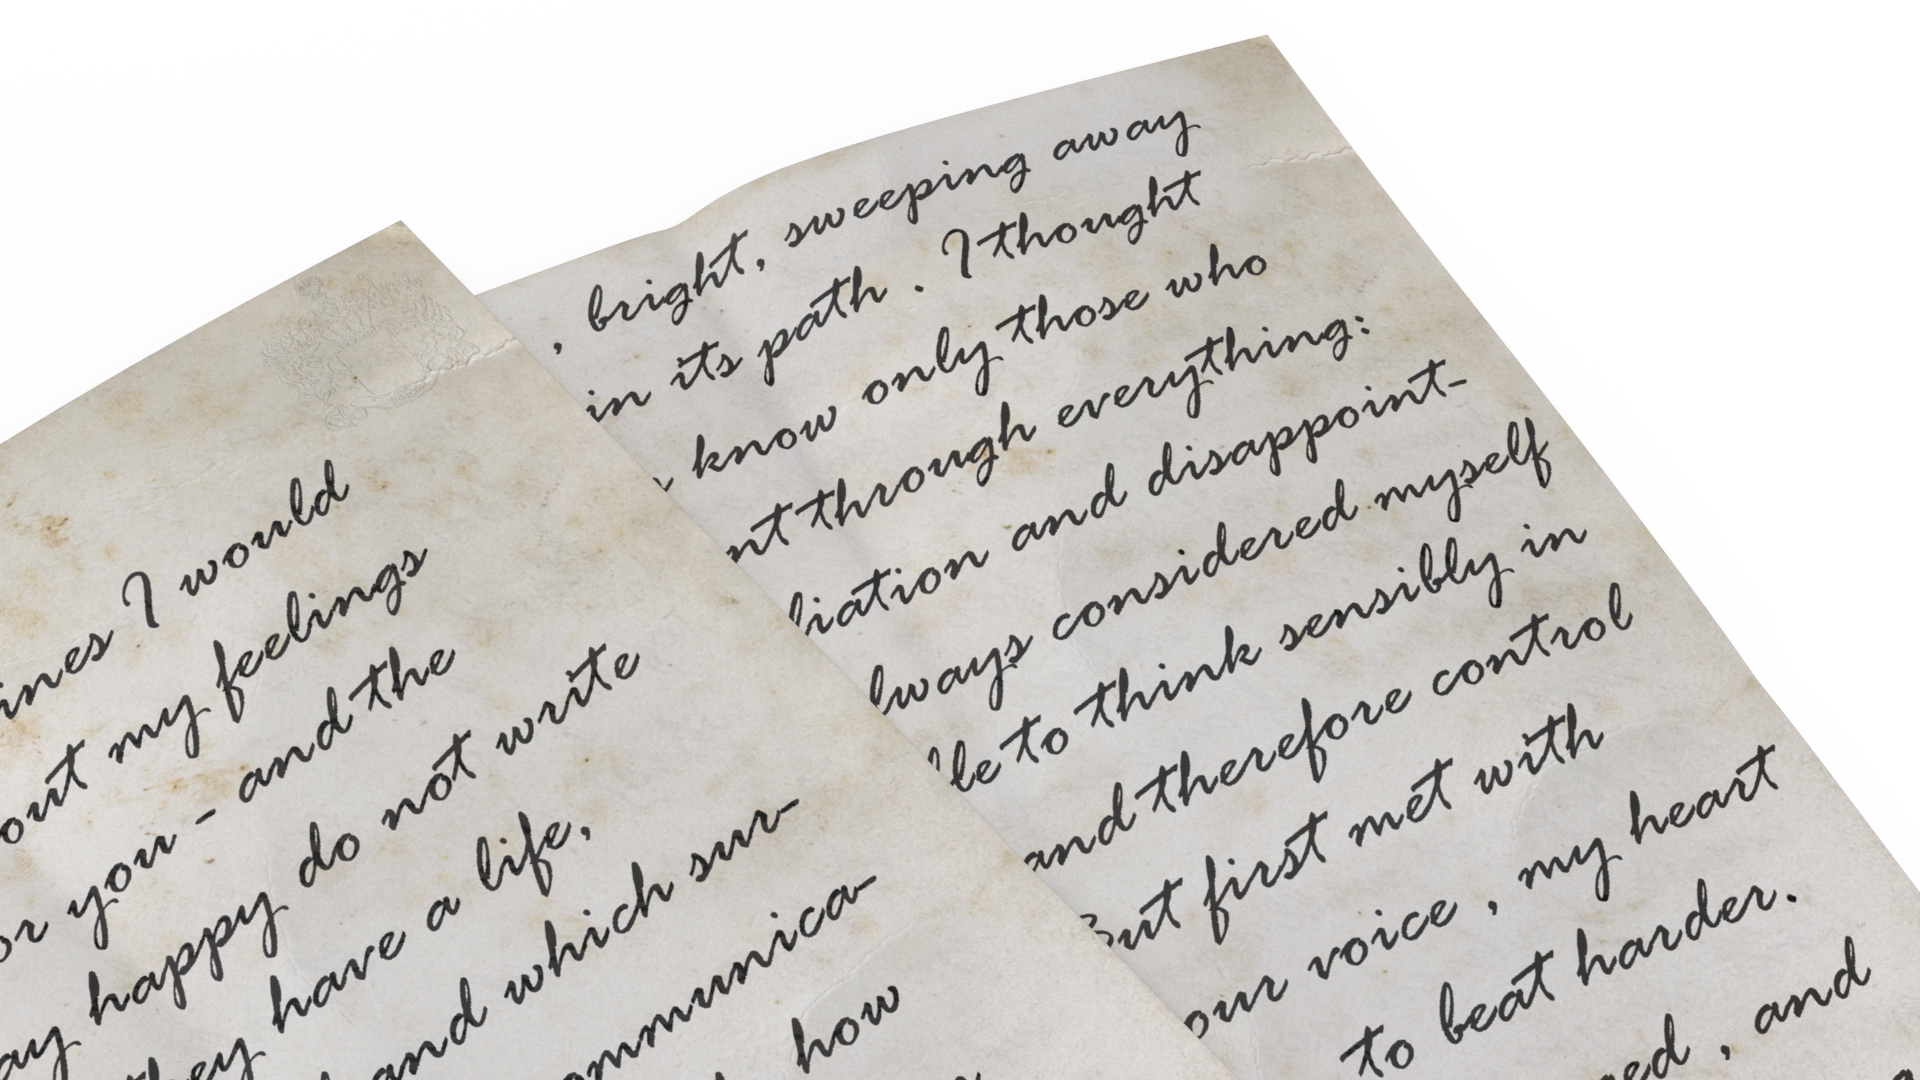 I would
my feelings
you - and the
happy do not write
have a life,
and which sur-
how
, bright, sweeping away
in its path . I thought
know only those who
through everything:
and disappoint-
considered myself
to think sensibly in
and therefore control
first met with
voice , my heart
to beat harder.
, and